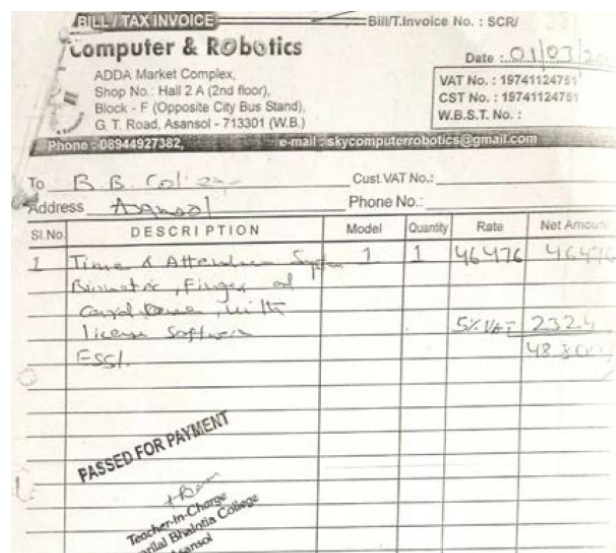 BILL / TAX INVOICE Bill/T.Invoice No. : SCR/
Computer & Robotics
Date : 01/03/
ADDA Market Complex,
Shop No.: Hall 2 A (2nd floor),
Block - F (Opposite City Bus Stand),
G. T. Road, Asansol - 713301 (W.B.)
VAT No. : 19741124751
CST No. : 19741124751
W.B.S.T. No. :
Phone : 08944927382, e-mail : skycomputerrobotics@gmail.com
To B. B. Cust.VAT No.:
Address Asansol Phone No.:
Sl.No. DESCRIPTION Model Quantity Rate Net Amoun
1 Time & System 1 1 46476 46476
Biometric, Finger
with
License Software 5% VAT 232
Essl. 48
PASSED FOR PAYMENT
Teacher-in-Charge
Bhalotia College
Asansol